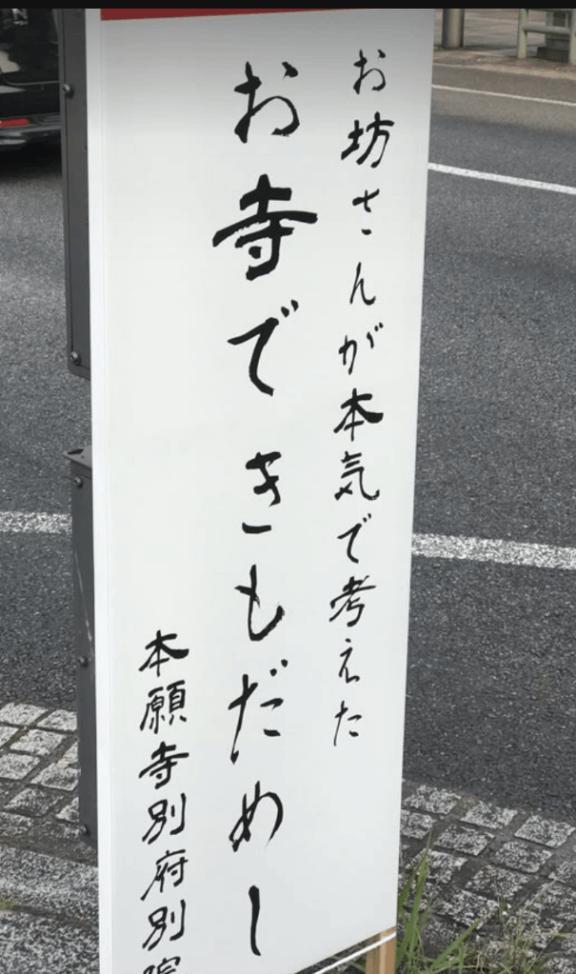 お坊さんが本気で考えた
お寺できもだめし
本願寺別府別院